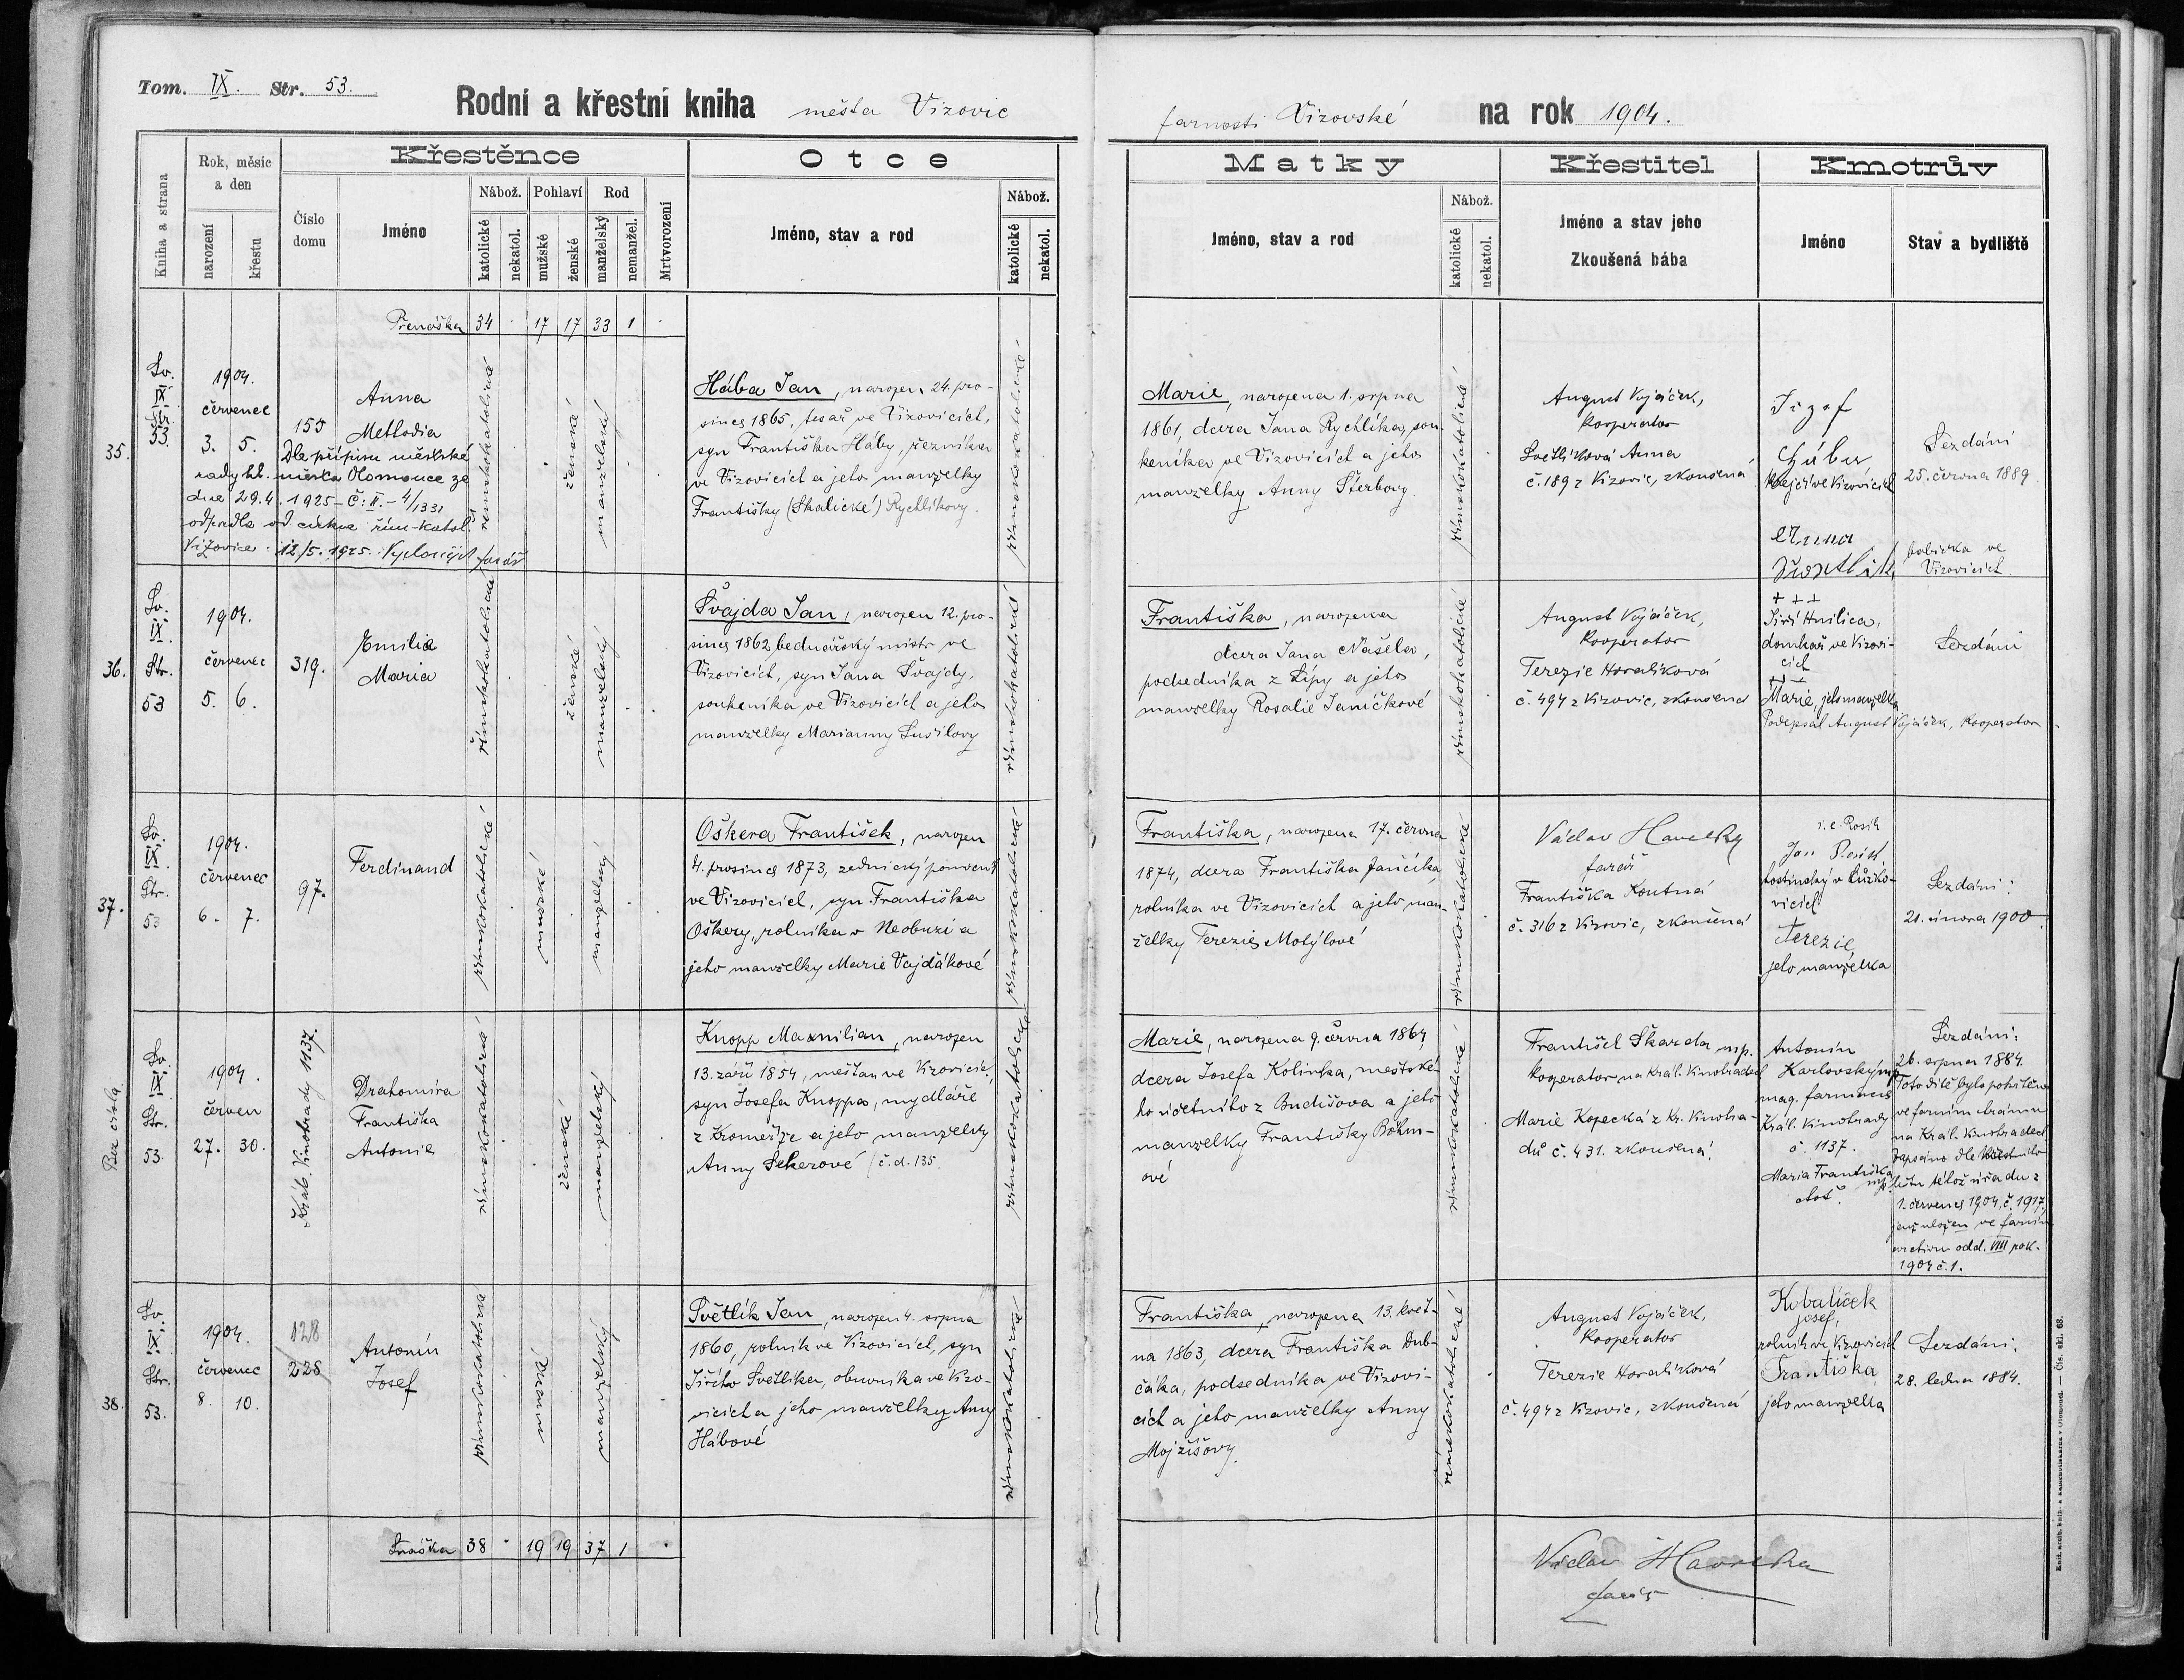 Tom. IX. Str. 53.
Rodní a křestní kniha města Vizovic
farnosti Vizovské na rok 1904.
Kniha a strana
Rok, měsíc a den
narození
křestu
Křestěnce
Číslo domu
Jméno
Nábož.
katolické
nekatol.
Pohlaví
mužské
ženské
Rod
manželský
nemanžel.
Mrtvorození
Otce
Jméno, stav a rod
Nábož.
katolické
nekatol.
Matky
Jméno, stav a rod
Nábož.
katolické
nekatol.
Křestitel
Jméno a stav jeho
Zkoušená bába
Kmotrův
Jméno
Stav a bydliště
Přenáška 34 17 17 33 1
35.
Sv.
IX
Str.
53.
1904.
červenec
3. 5.
155
Anna
Methodia
Dle přípisu městské
rady hl. města Olomouce ze
dne 29.4.1925 – č. II. – 4/1331
odpadla od církve řím-katol.
Vizovice 12/5. 1925. farář
římskokatolické
ženské
manželský
Hába Jan, narozen 24. pro-
since 1865, tesař ve Vizovicích,
syn Františka Háby, řezníka
ve Vizovicích a jeho manželky
Františky (Skalické) Rychlíkovy.
římskokatolické
Marie, narozena 1. srpna
1861, dcera Jana Rychlíka, sou-
keníka ve Vizovicích a jeho
manželky Anny Štěrbovy.
římskokatolické
August Vojáček,
kooperator
Světlíková Anna
č. 189 z Vizovic, zkoušená
Jozef
Gábu
krejčí ve Vizovicích
Anna
Swětlik
Sezdáni
25. června 1889
babička ve
Vizovicích.
36.
Sv.
IX.
Str.
53
1904.
červenec
5. 6.
319.
Emilia
Maria
římskokatolické
ženské
manželský
Švajda Jan, narozen 12. pro-
since 1862, bednářský mistr ve
Vizovicích, syn Jana Švajdy,
soukeníka ve Vizovicích a jeho
manželky Marianny Sušilovy
římskokatolické
Františka, narozena
dcera Jana Našela,
podsedníka z Lípy a jeho
manželky Rosalie Janíčkové
římskokatolické
August Vojáček,
kooperator
Terezie Horalíková
č. 494 z Vizovic, zkoušená
+ + +
Jiří Hnilica,
domkař ve Vizovi-
cích
+ + +
Marie, jeho manželka
Podepsal August Vojáček, kooperator
Sezdáni
37.
Sv.
IX
Str.
53
1904.
červenec
6. 7.
97.
Ferdinand
římskokatolické
mužské
manželský
Oškera František, narozen
4. prosince 1873, zednický
ve Vizovicích, syn Františka
Oškery, rolníka v Neobuzi a
jeho manželky Marie Vajďákové
římskokatolické
Františka, narozena 17. června
1874, dcera Františka Jančíka,
rolníka ve Vizovicích a jeho man-
želky Terezie Motýlové
římskokatolické
Václav Havelka
farář
Františka Koutná
č. 316 z Vizovic, zkoušená
i.e. Rosík
Jan
hostinský v
vicích
Terezie
jeho manželka
Sezdáni:
21. února 1900.
Bez čísla
Sv.
IX
Str.
53.
1904.
červen
27. 30.
Král. Vinohrady 1137.
Drahomíra
Františka
Antonie
římskokatolické
ženské
manželský
Knopp Maxmilian, narozen
13. září 1854, měšťan ve Vizovicích,
syn Josefa Knoppa, mydláře
z Kroměříže a jeho manželky
Anny Sekerové / č.d. 135.
římskokatolické
Marie, narozena 9. června 1864,
dcera Josefa Kolinka, městské-
ho účetního z Budišova a jeho
manželky Františky Böhm-
ové
římskokatolické
František Škarda mp.
kooperator na Král. Vinohradech
Marie Kopecká z Kr. Vinohra-
dů č. 431. zkoušená.
Antonín
Karlovský mp
mag. farmacie
Král. Vinohrady
č. 1137.
Maria Františka
choť. mp.
Sezdáni:
26. srpna 1884.
Toto dítě bylo pokřtěno
ve farním chrámu
na Král. Vinohradech.
Zapsáno dle křestního
listu téhož úřadu z
1. července 1904, č. 1917,
jenž uložen ve farním
archivu odd. VIII rok.
1904 č. 1.
38.
Sv.
IX.
Str.
53.
1904.
červenec
8. 10.
128
228
Antonín
Josef
římskokatolické
mužské
manželský
Světlík Jan, narozen 4. srpna
1860, rolník ve Vizovicích, syn
Jiřího Světlíka, obuvníka ve Vizo-
vicích a jeho manželky Anny
Hábové
římskokatolické
Františka, narozena 13. květ-
na 1863, dcera Františka Dub-
čáka, podsedníka ve Vizovi-
cích a jeho manželky Anny
Mojžíšovy.
římskokatolické
August Vojáček,
kooperator
Terezie Horalíková
č. 494 z Vizovic, zkoušená
Kobalíček
Josef,
rolník ve Vizovicích
Františka
jeho manželka
Sezdáni:
28. ledna 1884.
Snáška 38 19 19 37 1
Václav Havelka
farář